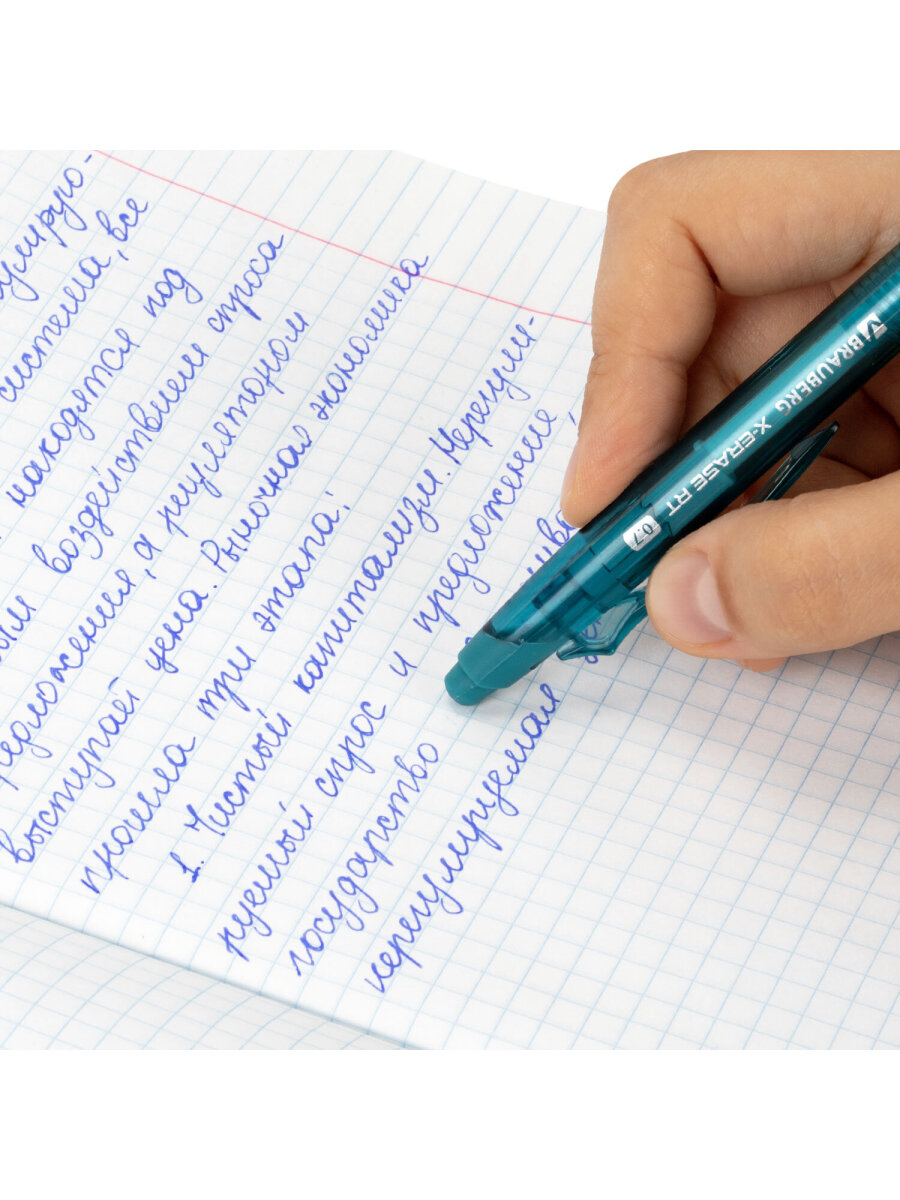 система, все
находятся под
воздействием спроса
а регулятором
выступает цена. Рыночная экономика
прошла три этапа:
1. Чистый капитализм. Нерегули-
руемый спрос и предложение,
государство
нерегулируемая
BRAUBERG X-ERASE RT 0.7